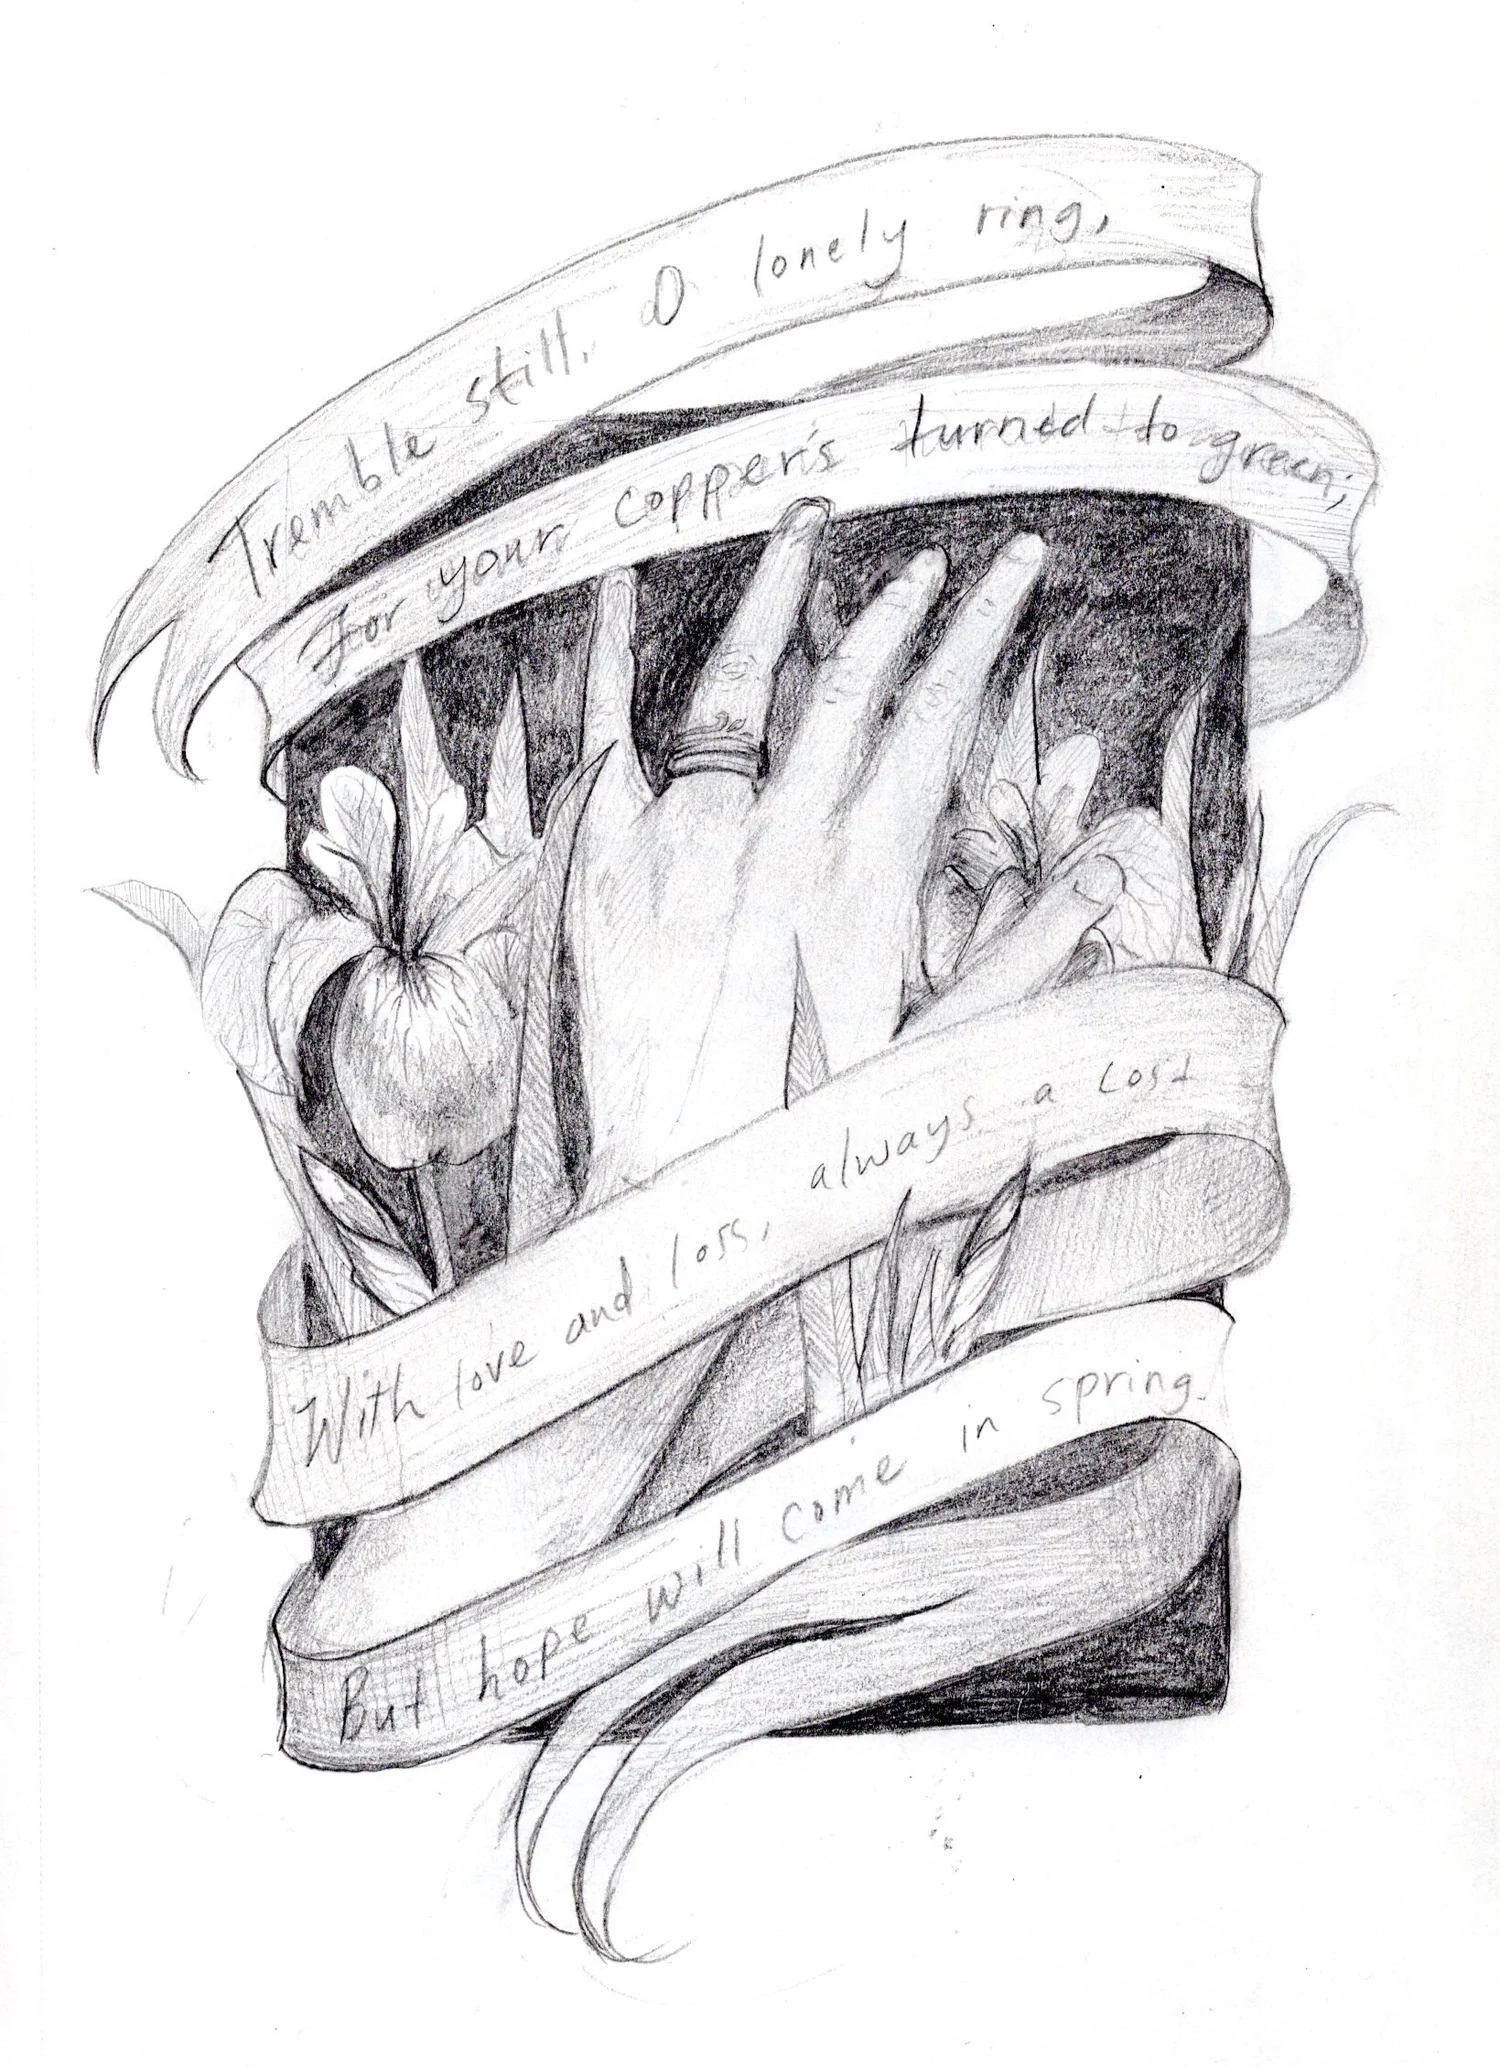 Tremble still, O lonely ring,
For your copper's turned to green;
With love and loss, always a cost
But hope will come in spring.